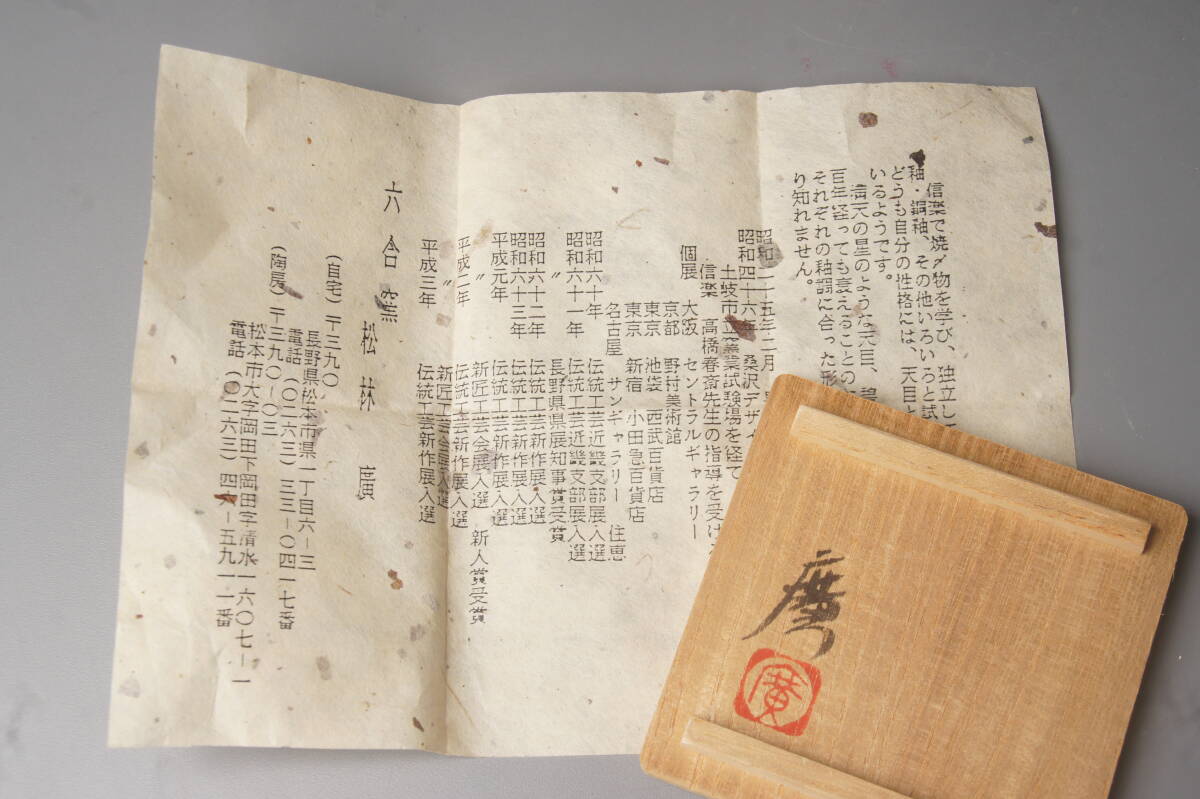 信楽で焼〆物を学び、独立し
釉・銅釉、その他いろいろと試
どうも自分の性格には、天目と
いるようです。
満天の星のような天目、
百年経っても衰えることの
それぞれの釉調に合った形
り知れません。
昭和二十五年二月
昭和四十六年 桑沢デザイ
土岐市立窯業試験場を経て
信楽 高橋春斎先生の指導を受け
個展 大阪 セントラルギャラリー
京都 野村美術館
東京 池袋 西武百貨店
東京 新宿 小田急百貨店
名古屋 サンギャラリー 住恵
昭和六十年 伝統工芸近畿支部展入選
昭和六十一年 伝統工芸近畿支部展入選
〃 長野県県展知事賞受賞
昭和六十二年 伝統工芸新作展入選
昭和六十三年 伝統工芸新作展入選
平成元年 伝統工芸新作展入選
〃 新匠工芸会展入選 新人賞受賞
平成二年 伝統工芸新作展入選
〃 新匠工芸会展入選
平成三年 伝統工芸新作展入選
六舎窯 松林 廣
(自宅) 〒三九〇
長野県松本市県一丁目六-三
電話(〇二六三)三三-〇四一七番
(陶房) 〒三九〇-〇三
松本市大字岡田下岡田字清水一六〇七-一
電話(〇二六三)四六-五九一一番
廣
廣